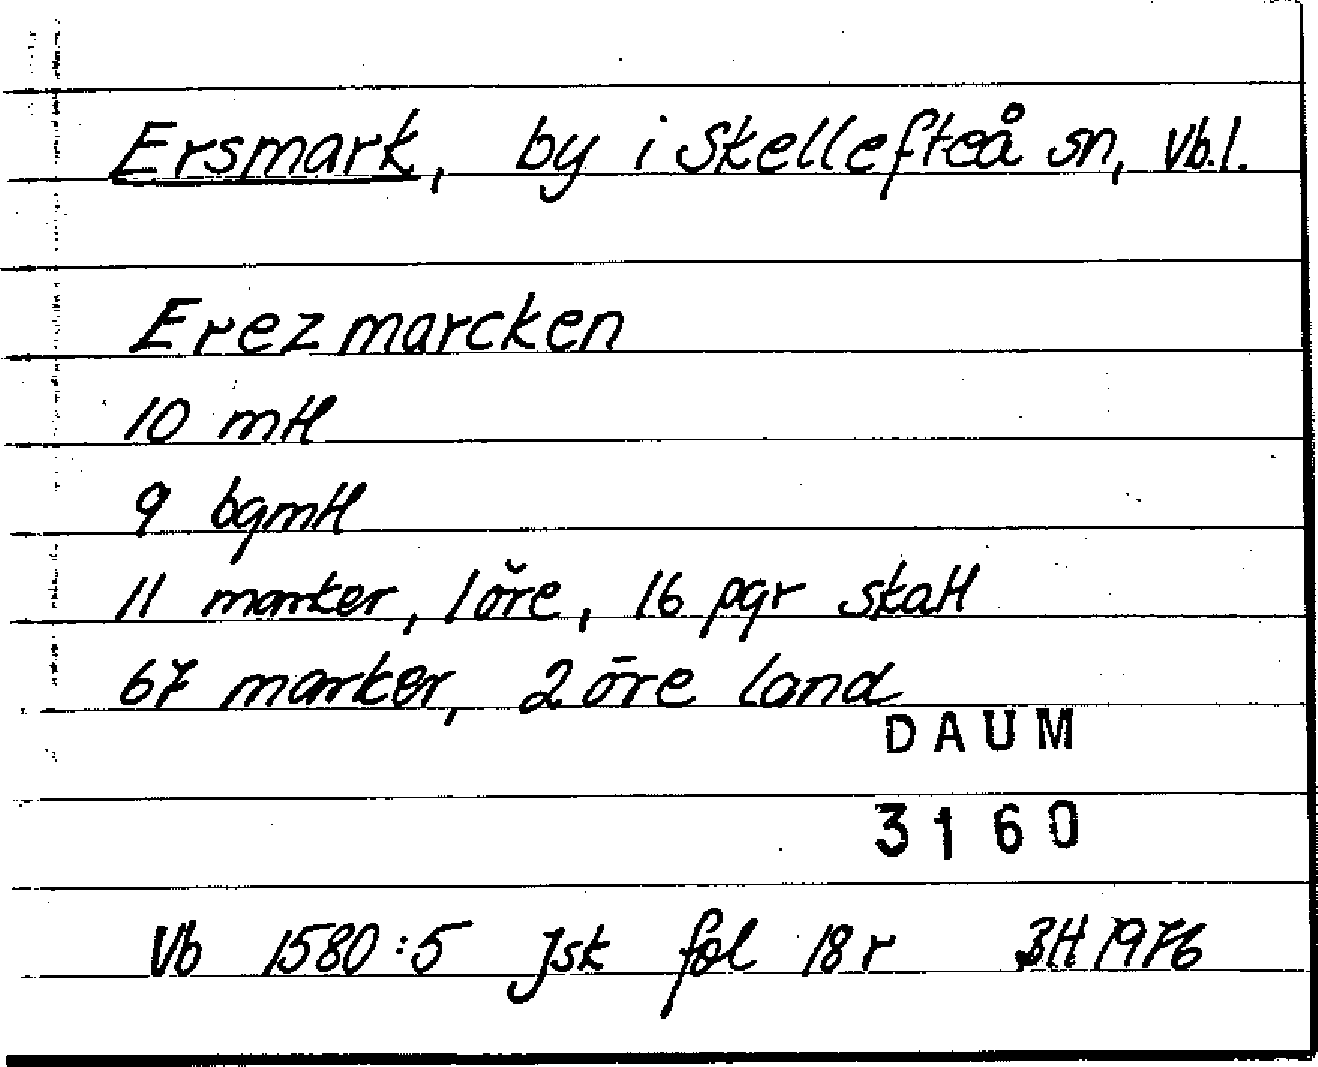 Ersmark, by i Skellefteå sn, Vb.l.
Erezmarcken
10 mtl
9 bgmtl
11 marker, 1 öre, 16 pgr skatt
67 marker, 2 öre land
DAUM
3160
Vb 1580:5 Jsk fol 18r BH 1976